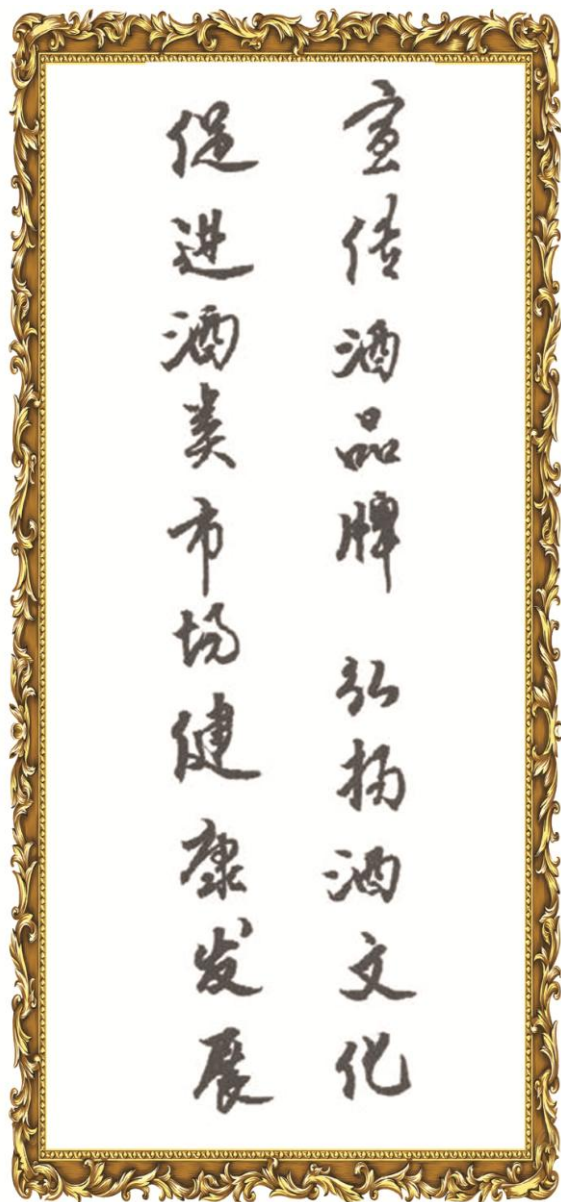 宣传酒品牌 弘扬酒文化
促进酒类市场健康发展